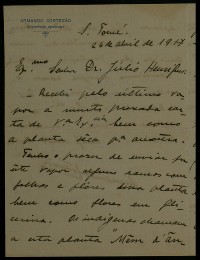 ARMANDO CORTEZÃO
S. Tomé,
26 de abril de 1917
Ex.mo Senhor Dr. Julio Henriques
Recebi pelo ultimo va-
por a muito prezada car-
ta de V.ª Ex.cia bem como
a planta sêca pª amostra.
Tenho o prazer de enviar por
este vapor alguns ramos com
folhas e flores dessa planta
bem como flores em gli-
cerina. Os indigenas chamam
a esta planta "Mêm d'An-